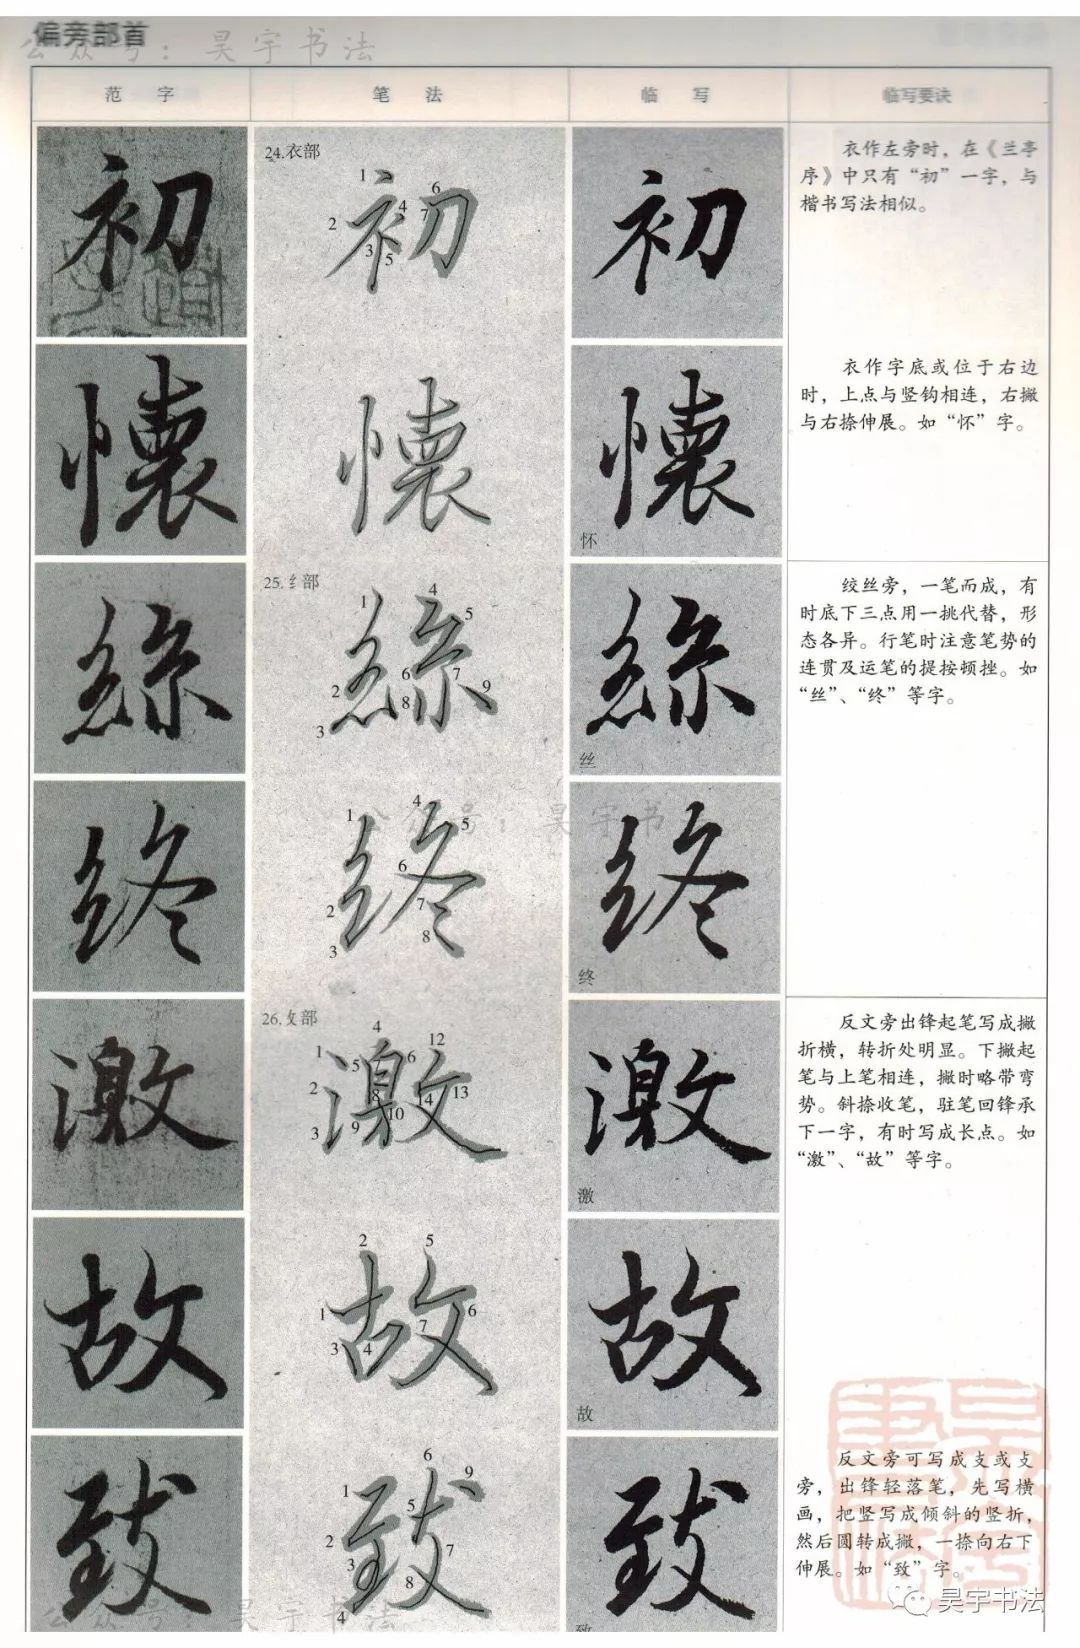 偏旁部首
公众号：昊宇书法
范 字
笔 法
临 写
临写要诀
初
24.衣部
1
2
3
4
5
6
7
初
初
衣作左旁时，在《兰亭
序》中只有“初”一字，与
楷书写法相似。
懷
懷
懷
怀
衣作字底或位于右边
时，上点与竖钩相连，右撇
与右捺伸展。如“怀”字。
絲
25.纟部
1
2
3
4
5
6
7
8
9
絲
絲
丝
绞丝旁，一笔而成，有
时底下三点用一挑代替，形
态各异。行笔时注意笔势的
连贯及运笔的提按顿挫。如
“丝”、“终”等字。
终
1
2
3
4
5
6
7
8
终
终
终
公众号：昊宇书
激
26.攵部
1
2
3
4
5
6
8
9
10
12
13
14
激
激
激
反文旁出锋起笔写成撇
折横，转折处明显。下撇起
笔与上笔相连，撇时略带弯
势。斜捺收笔，驻笔回锋承
下一字，有时写成长点。如
“激”、“故”等字。
故
1
2
3
4
5
6
7
故
故
故
致
1
2
3
4
5
6
7
8
9
致
致
致
反文旁可写成支或攴
旁，出锋轻落笔，先写横
画，把竖写成倾斜的竖折，
然后圆转成撇，一捺向右下
伸展。如“致”字。
公众号：昊宇书法
昊宇书法